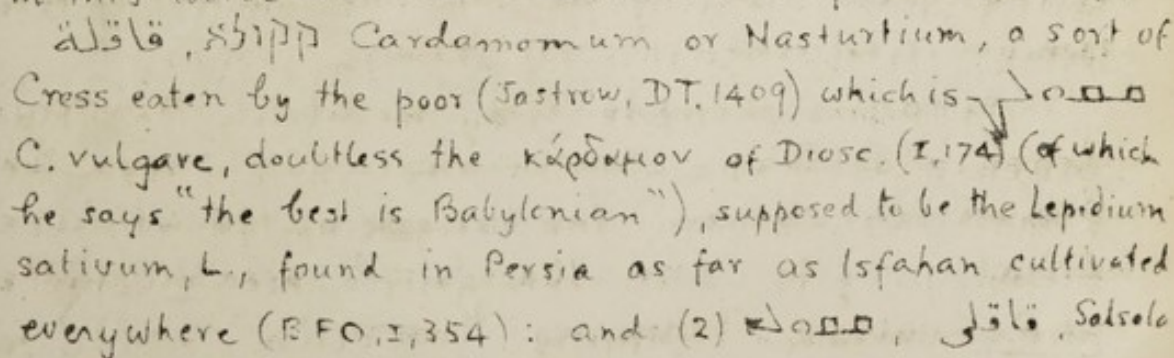 قاقلة, קקולא Cardamomum or Nasturtium, a sort of
Cress eaten by the poor (Jastrow, DT, 1409) which is ܩܩܘܠܐ
C. vulgare, doubtless the κάρδαμον of Diosc. (I, 174) (of which
he says "the best is Babylonian"), supposed to be the Lepidium
sativum, L., found in Persia as far as Isfahan cultivated
everywhere (BFO, I, 354): and (2) , قاقلى, Salsola